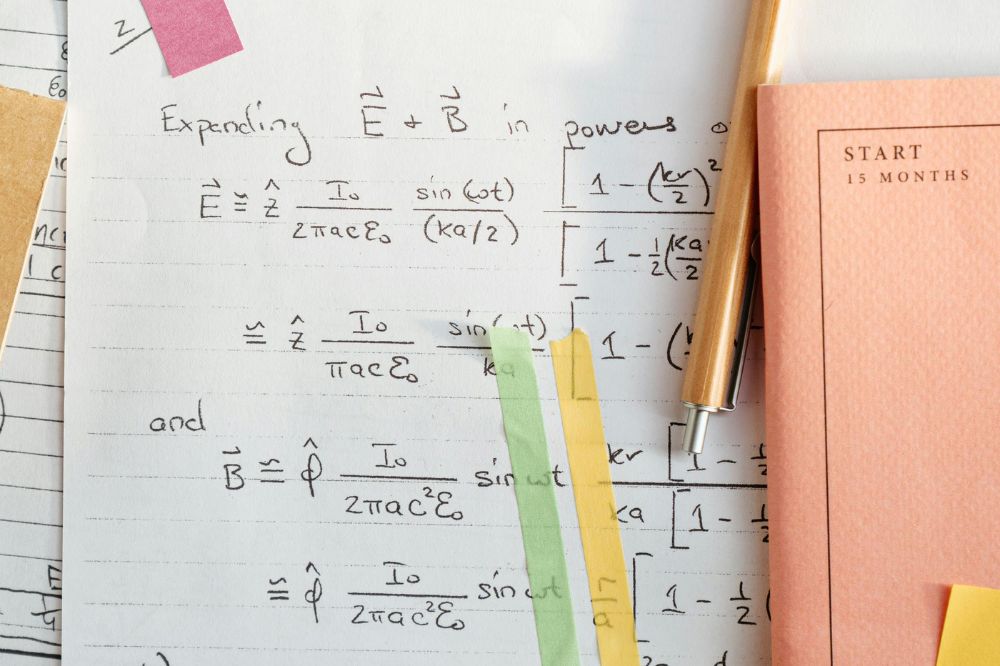 2
Expanding E⃗ + B⃗ in powers
E⃗ ≅ ẑ I₀/(2πacε₀) sin(ωt)/(ka/2) [1 - (kr/2)²/[1 - ½(ka/2
≅ ẑ I₀/(πacε₀) sin(ωt)/ka [1 - (
and
B⃗ ≅ φ̂ I₀/(2πac²ε₀) sin ωt kr[1 - ½/ka[1 - ½
≅ φ̂ I₀/(2πac²ε₀) sin ωt r/a [1 - ½(
START
15 MONTHS